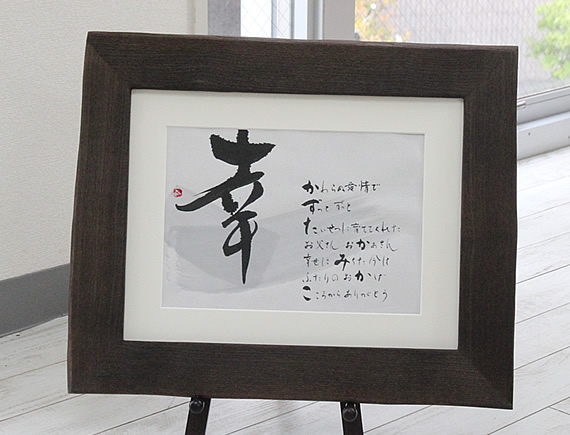 幸
かわらぬ愛情で
ずっと ずっと
たいせつに育ててくれた
お父さん おかあさん
幸せに みちた今は
ふたりの おかげ
こころからありがとう